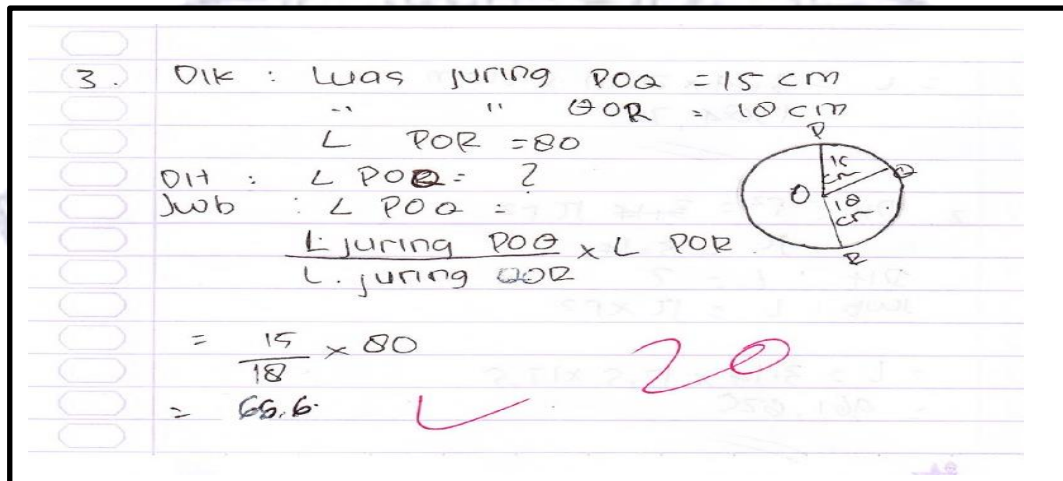 3. DIK : Luas juring POQ = 15 cm
" " QOR = 18 cm
∠ POR = 80
DIT : ∠ POQ = ?
Jwb : ∠ POQ =
L juring POQ / L. juring QOR × ∠ POR
= 15/18 × 80
= 66.6
20
P
15 cm
Q
O
18 cm
R